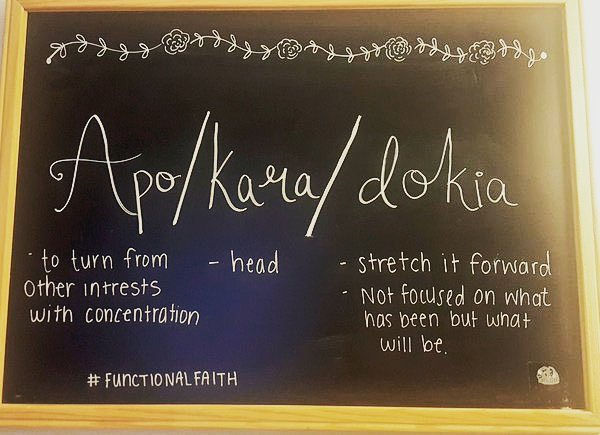 Apo/kara/dokia
- to turn from
other intrests
with concentration
- head
- stretch it forward
- Not focused on what
has been but what
will be.
#FUNCTIONALFAITH